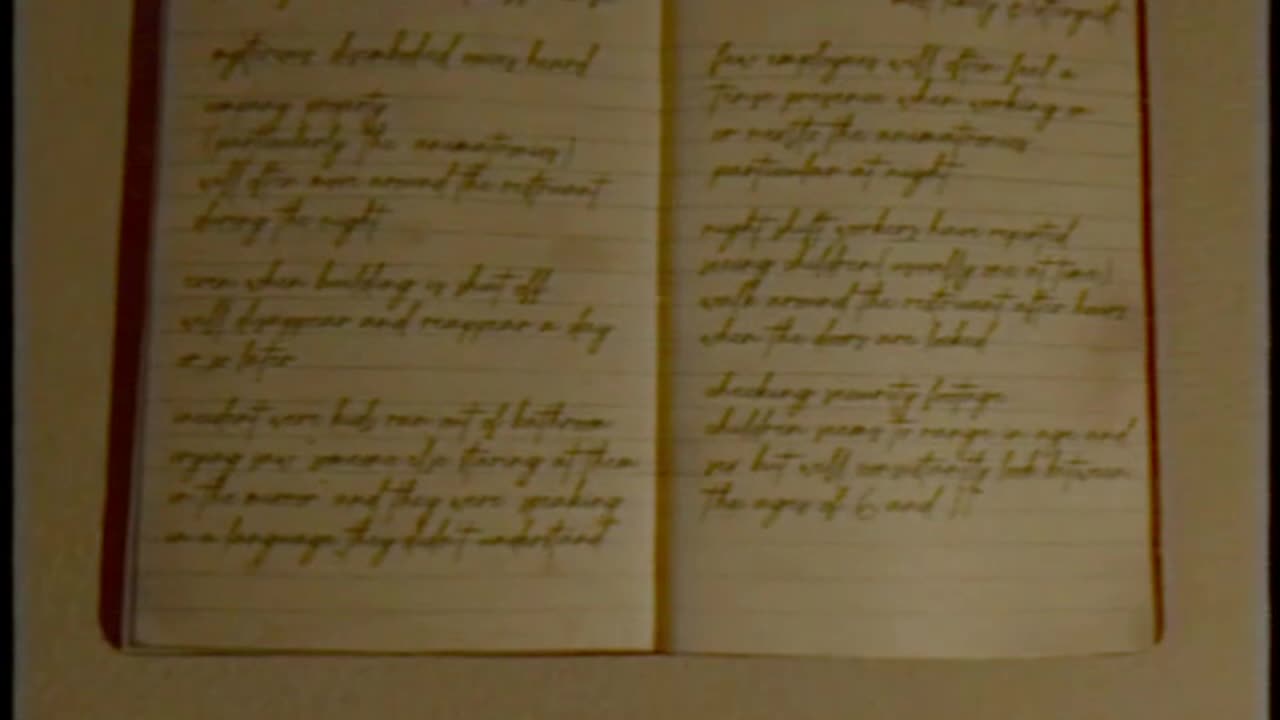 mysterious disembodied voices heard
company property
(particularly the animatronics)
will often move around the restraunt
during the night
even when building is shut off
will disappear and reappear a day
or so later
incident were kids ran out of bathroom
crying saw someone else staring at them
in the mirror and they were speaking
in a language they didn't understand
few employees will often feel a
tense presence when working in
or next to the animatronics
particular at night
night shift workers have reported
seeing children (usually one at time)
walk around the restraunt after hours
when the doors are locked
checking security footage
children seems to range in age and
sex but will consistantly look between
the ages of 6 and 11